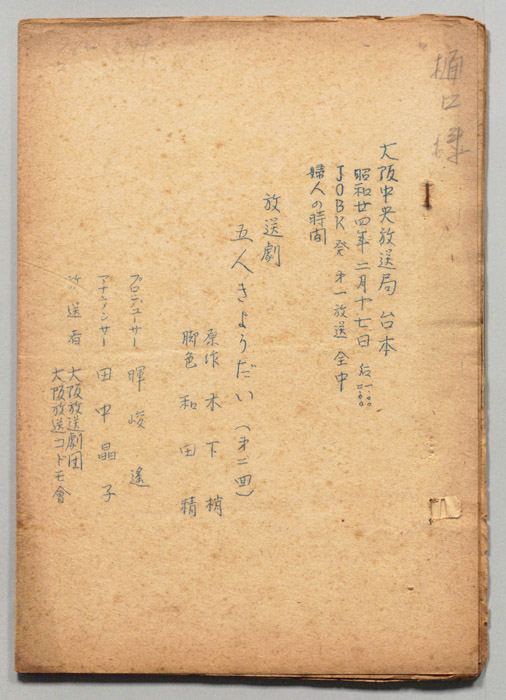 樋口様
大阪中央放送局 台本
昭和廿四年二月十七日 后一・〇〇
JOBK発 第一放送 全中
婦人の時間
放送劇
五人きようだい(第二回)
原作 木下梢
脚色 和田精
プロデューサー 暉峻 遙
アナウンサー 田中晶子
放送者 大阪放送劇団
大阪放送コドモ會